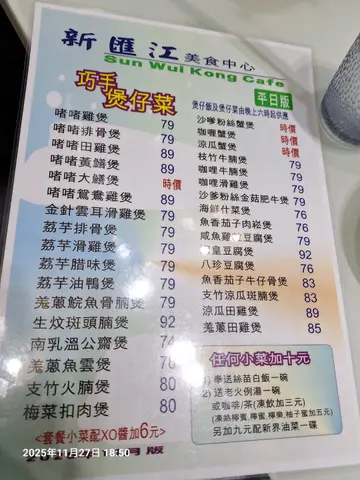 新匯江美食中心
Sun Wui Kong Cafe
巧手煲仔菜
平日版
煲仔飯及煲仔菜由晚上六時起供應
啫啫雞煲 79
啫啫排骨煲 79
啫啫田雞煲 89
啫啫黃鱔煲 89
啫啫大鱔煲 時價
啫啫鴛鴦雞煲 89
金針雲耳滑雞煲 79
荔芋排骨煲 79
荔芋滑雞煲 79
荔芋腊味煲 79
荔芋油鴨煲 79
羗蔥鯇魚骨腩煲 79
生炆斑頭腩煲 92
南乳溫公齋煲 74
羗蔥魚雲煲
支竹火腩煲 80
梅菜扣肉煲 80
<套餐小菜配XO醬加6元>
沙嗲粉絲蟹煲 時價
咖喱蟹煲 時價
涼瓜蟹煲 時價
枝竹牛腩煲 79
咖喱牛腩煲 79
咖喱滑雞煲 79
沙嗲粉絲金菇肥牛煲 79
海鮮什菜煲 76
魚香茄子肉崧煲 76
咸魚雞粒豆腐煲 76
皇豆腐煲 92
八珍豆腐煲 76
魚香茄子牛仔骨煲 83
支竹涼瓜斑腩煲 83
涼瓜田雞煲 89
羗蔥田雞煲 85
任何小菜加十元
1) 奉送絲苗白飯一碗
2) 送老火例湯一碗
或咖啡/茶(凍飲加三元)
(凍熱檸蜜,檸蜜,檸樂,柚子蜜加五元)
另加九元配新界油菜一碟
2025年11月27日 18:50